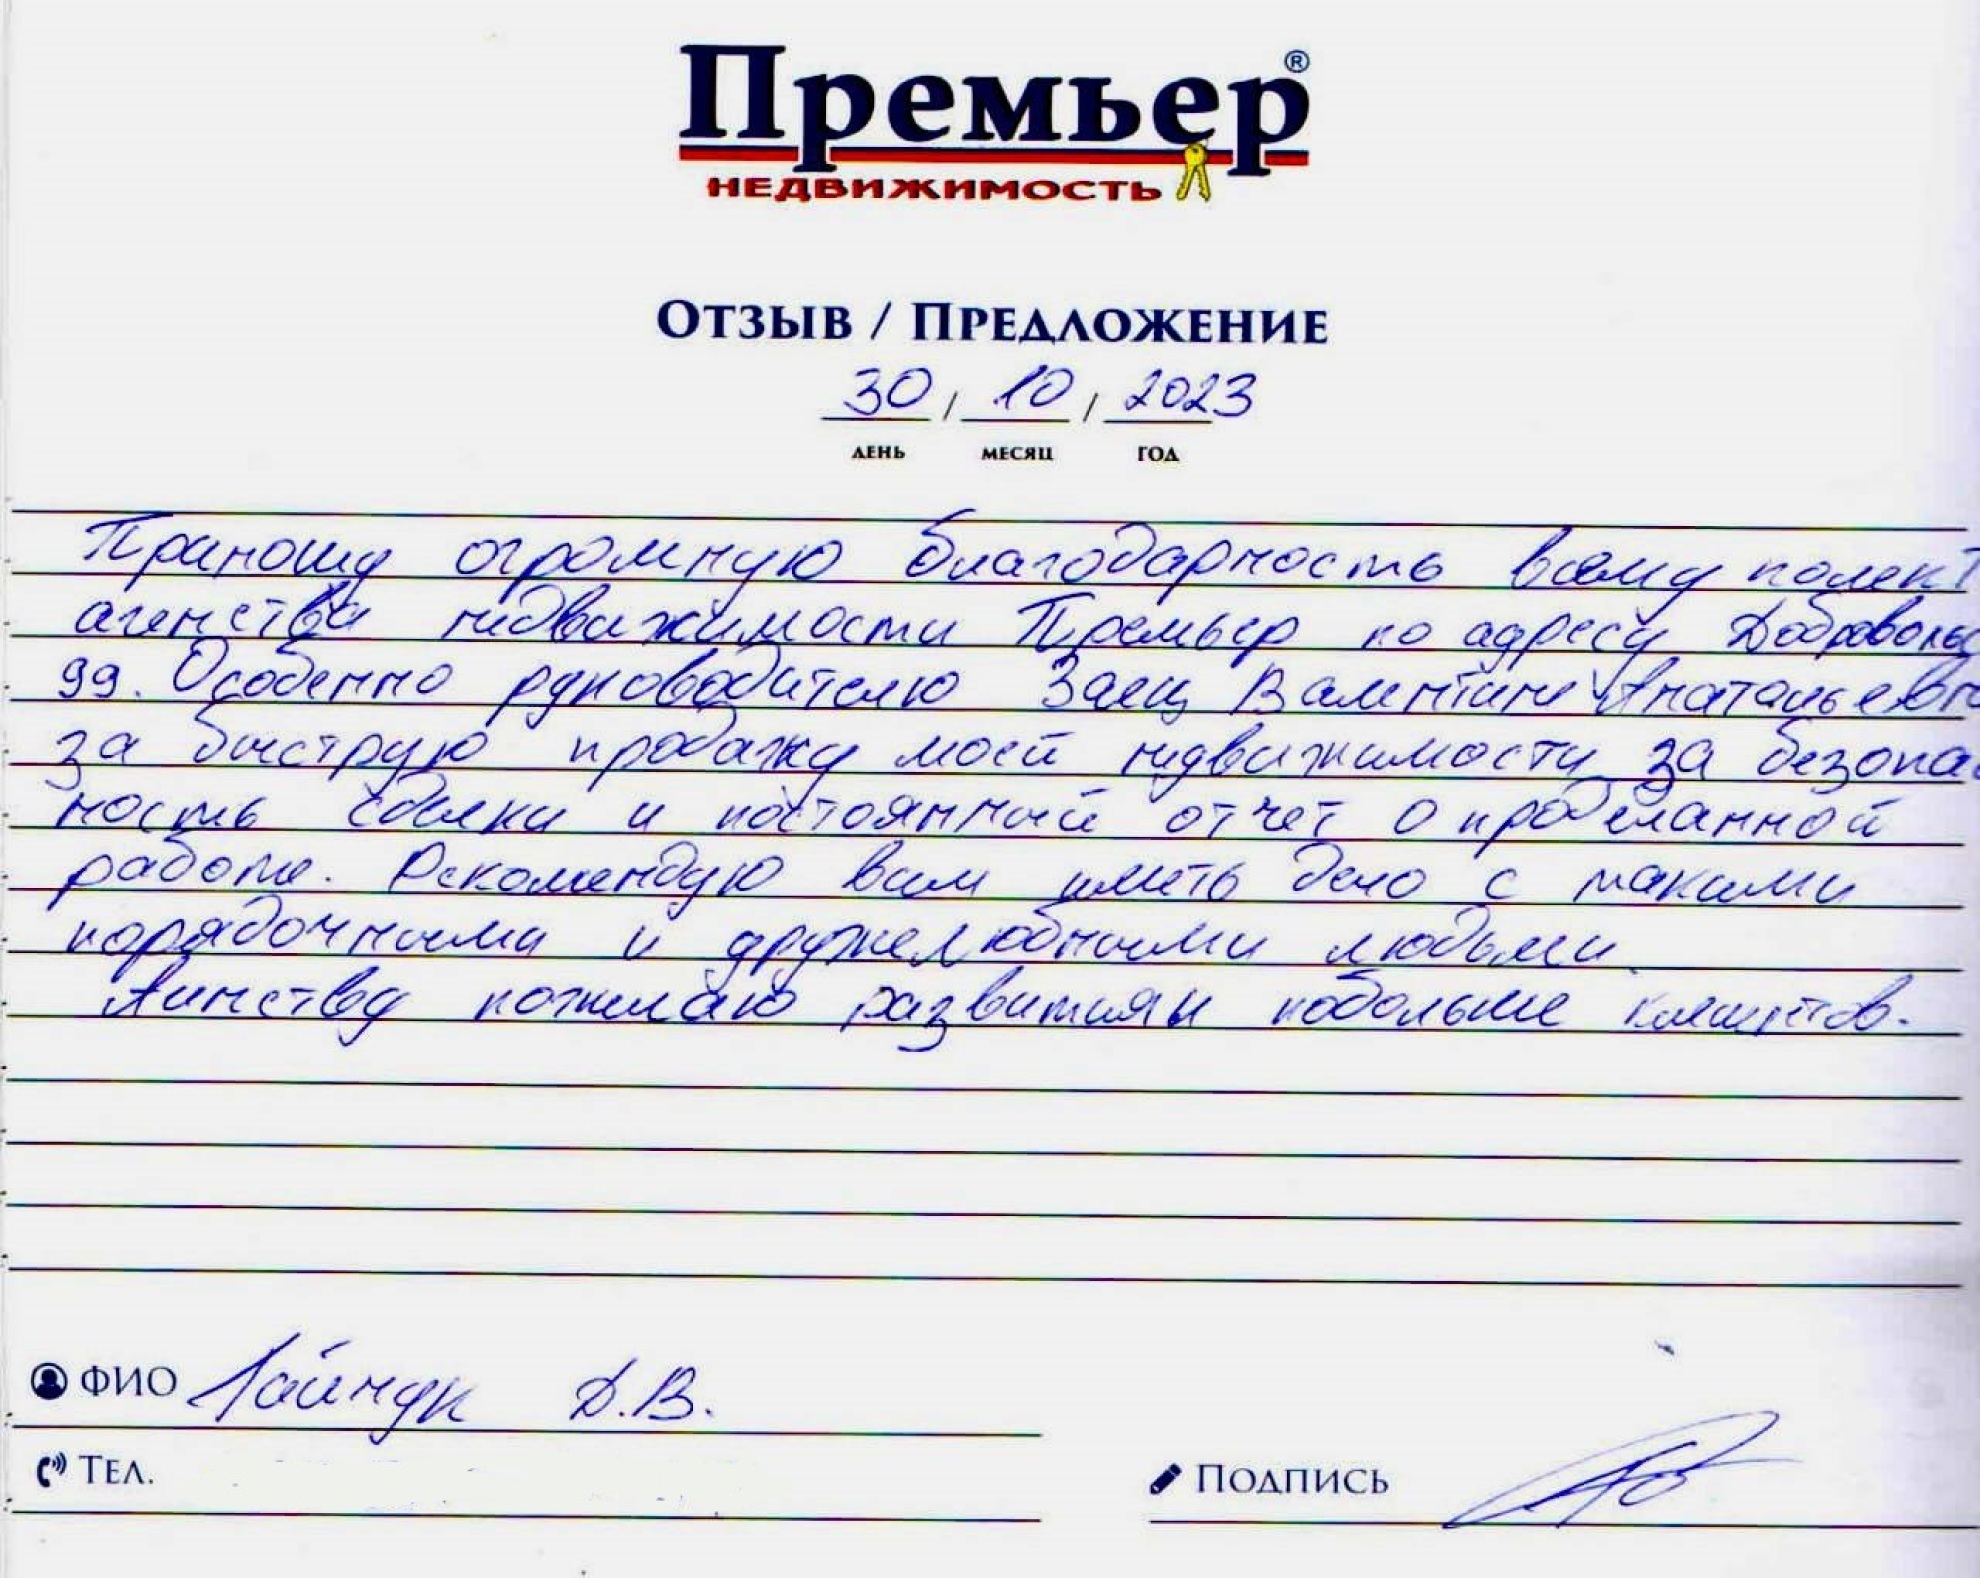 Премьер®
НЕДВИЖИМОСТЬ
Отзыв / Предложение
30 / 10 / 2023
ДЕНЬ МЕСЯЦ ГОД
Приношу огромную благодарность всему колект
агенства недвижимости Премьер по адресу Добровольс
99. Особенно руководителю Заец Валентине Анатольевн
за быструю продажу моей недвижимости за безопас
ность сделки и постоянный отчет о проделанной
работе. Рекомендую вам иметь дело с такими
порядочными и дружелюбными людьми.
Агинству пожелаю развития и побольше клиентов.
ФИО Лайчук Д.В.
Тел.
Подпись